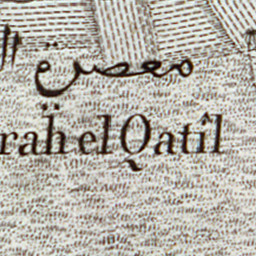 معصرة
rah el Qatîl